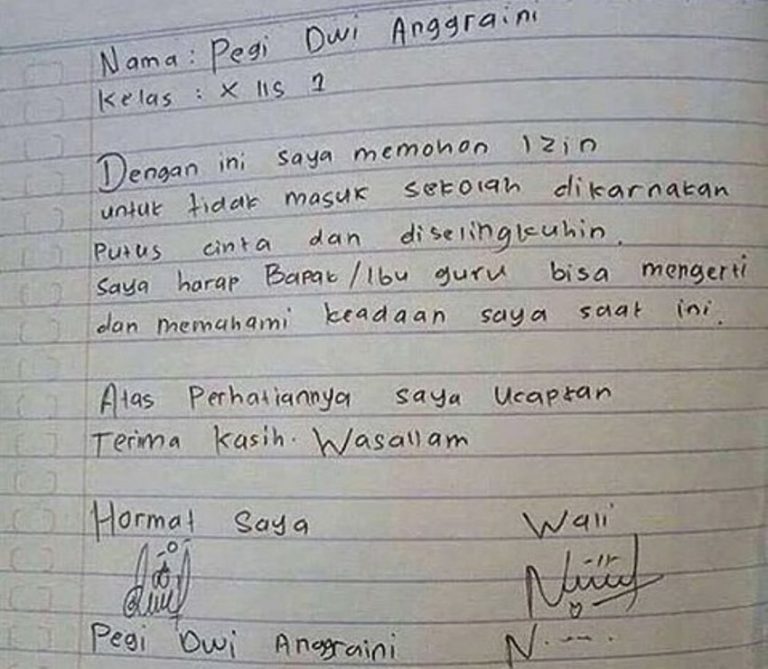 Nama : Pegi Dwi Anggraini
Kelas : X IIS 1
Dengan ini saya memohon izin
untuk tidak masuk sekolah dikarnakan
Putus cinta dan diselingkuhin.
Saya harap Bapak/Ibu guru bisa mengerti
dan memahami keadaan saya saat ini.
Atas Perhatiannya saya ucapkan
Terima kasih. Wasallam
Hormat Saya Wali
Pegi Dwi Anggraini N.----.